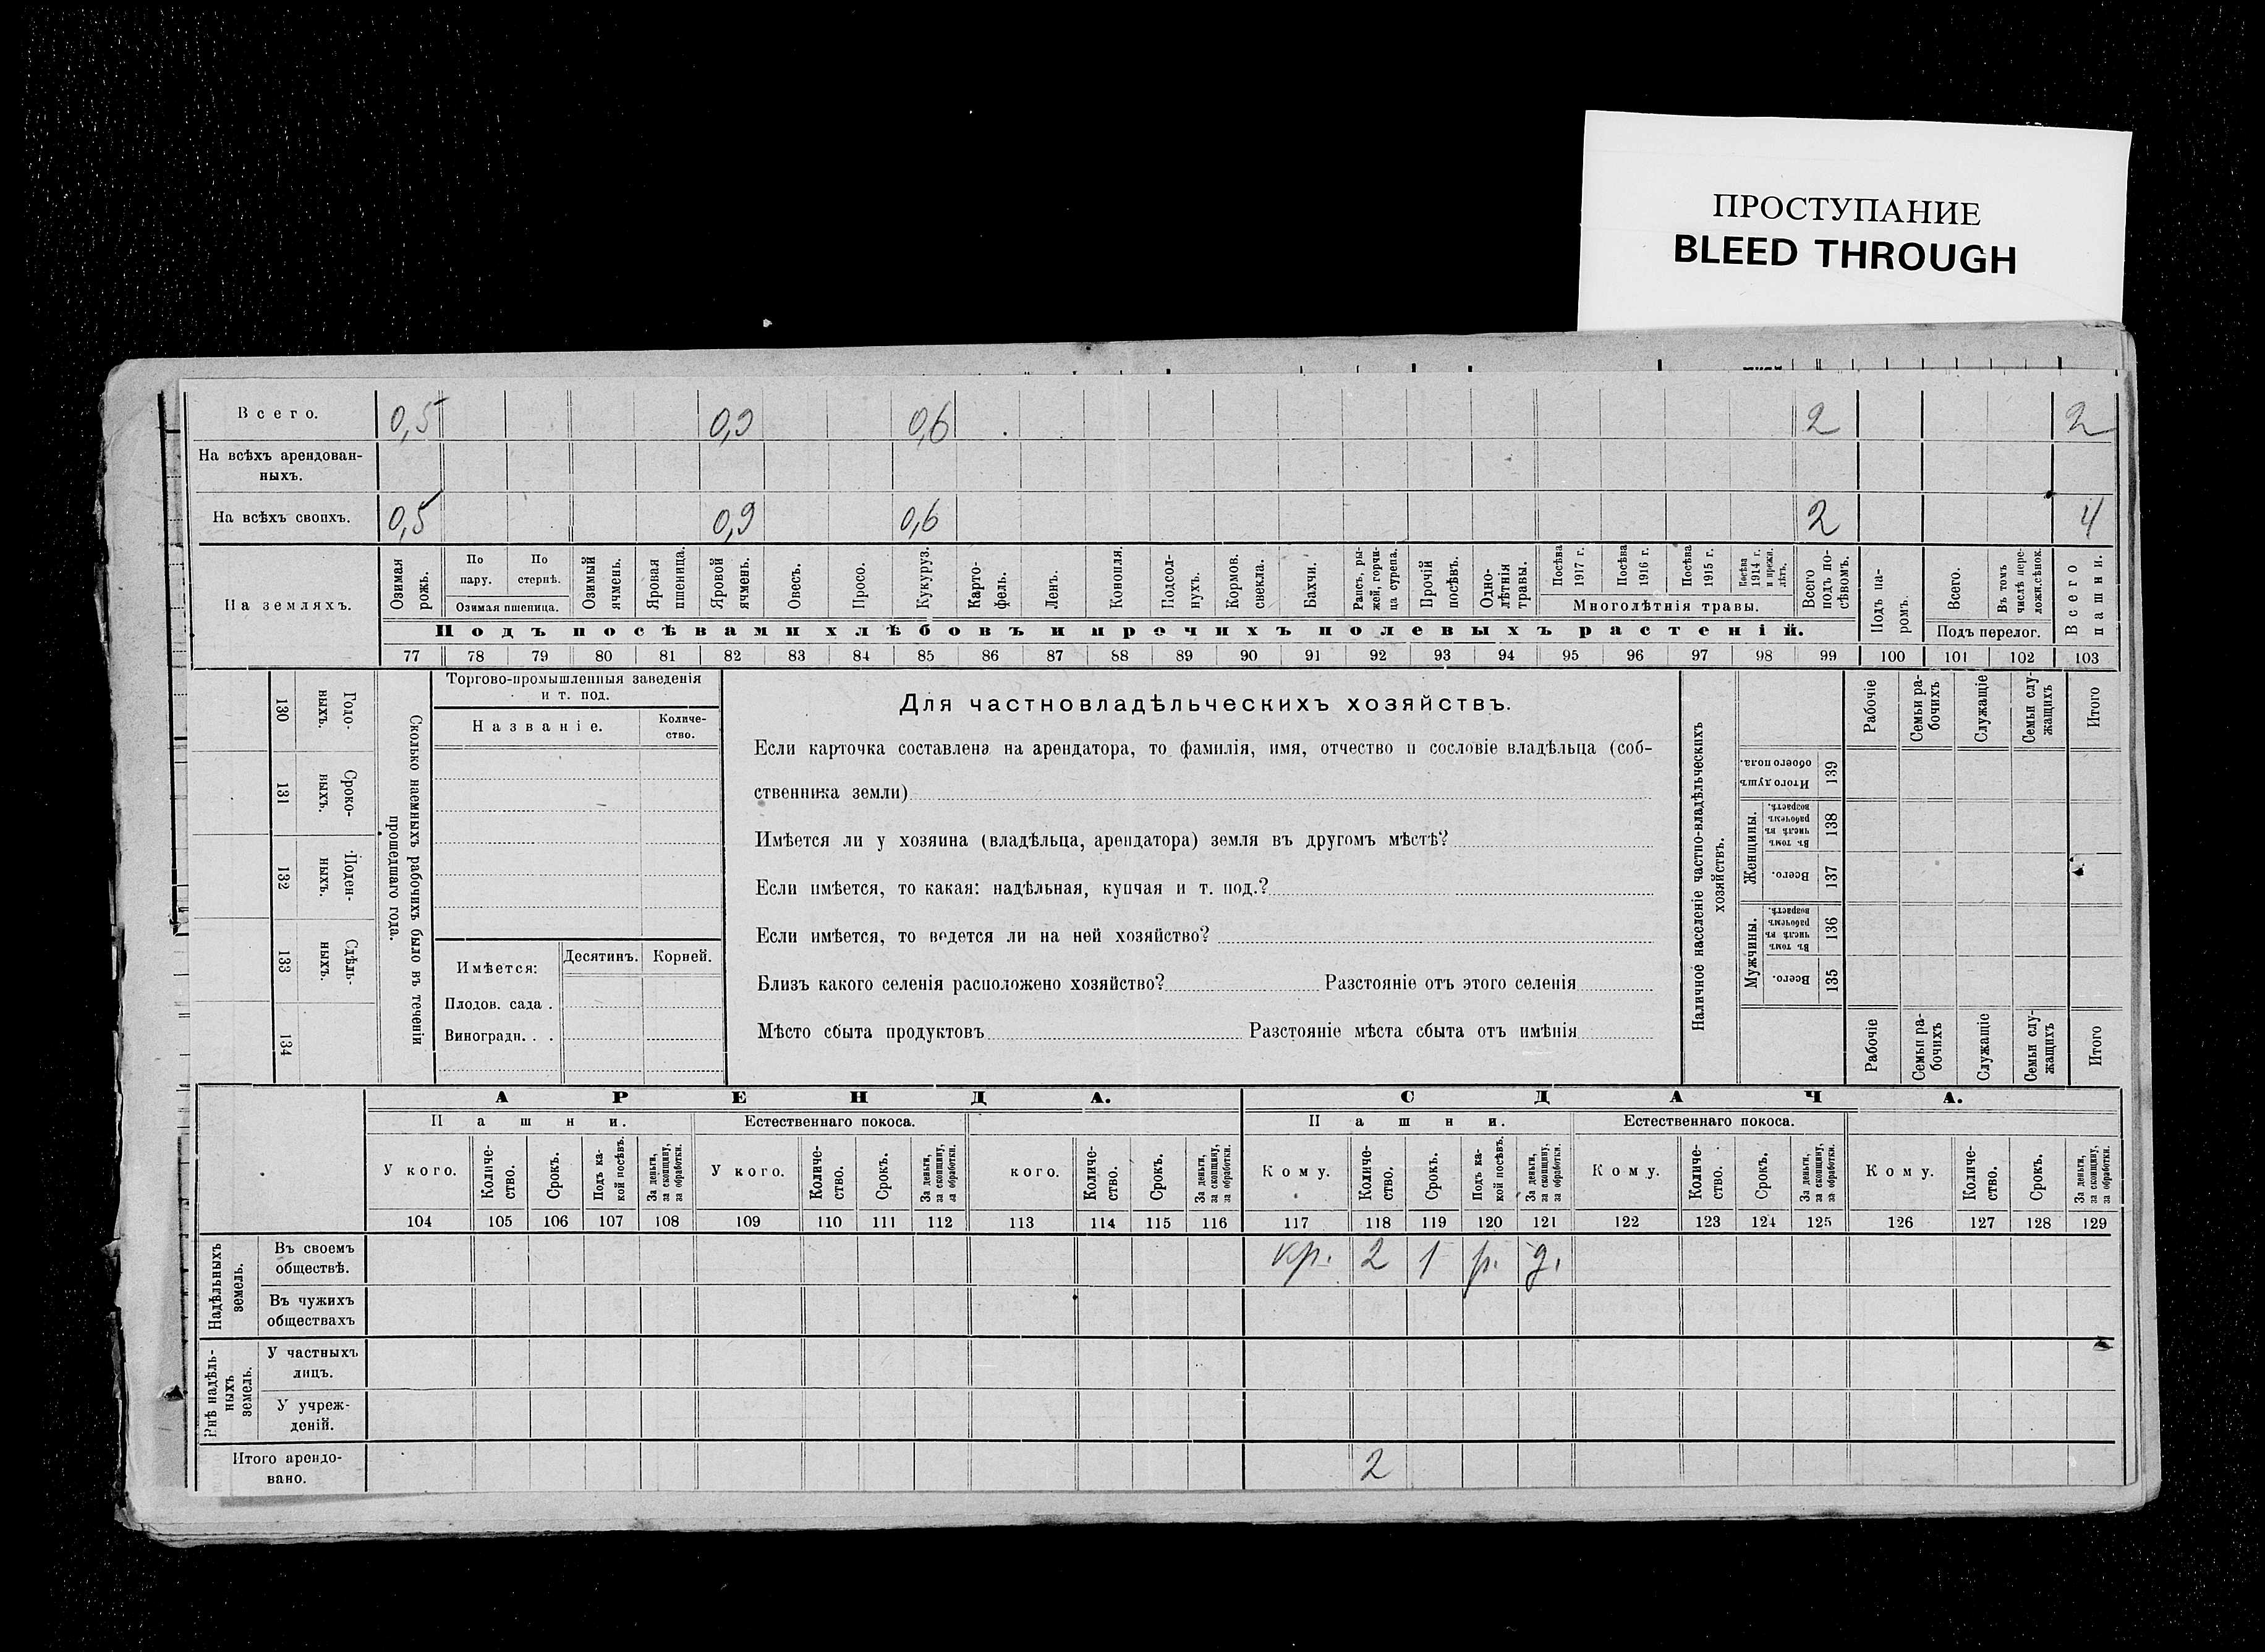 ПРОСТУПАНИЕ
BLEED THROUGH
Всего. 0,5 0,9 0,6 2 2
На всѣхъ арендован-
ныхъ.
На всѣхъ своихъ. 0,5 0,9 0,6 2 4
На земляхъ.
Озимая рожь.
По пару.
По стернѣ.
Озимая пшеница.
Озимый ячмень.
Яровая пшеница.
Яровой ячмень.
Овесъ.
Просо.
Кукуруз.
Карто-
фель.
Ленъ.
Конопля.
Подсол-
нухъ.
Кормов.
свекла.
Бахчи.
Рапсъ, ры-
жей, горчи-
ца сурепа.
Прочій
посѣвъ.
Одно-
лѣтнія
травы.
Посѣва
1917 г.
Посѣва
1916 г.
Посѣва
1915 г.
Посѣва
1914 г.
и прежн.
лѣтъ.
Многолѣтнія травы.
Всего
подъ по-
сѣвомъ.
Подъ па-
ромъ.
Всего.
Въ томъ
числѣ пере-
ложн.сѣнок.
Подъ перелог.
Всего
пашни.
Подъ посѣвами хлѣбовъ и прочихъ полевыхъ растеній.
77 78 79 80 81 82 83 84 85 86 87 88 89 90 91 92 93 94 95 96 97 98 99 100 101 102 103
130 Годо-
ныхъ.
131 Сроко-
ныхъ.
132 Поден-
ныхъ.
133 Сдѣль-
ныхъ.
134
Сколько наемныхъ рабочихъ было въ теченіи
прошедшаго года.
Торгово-промышленныя заведенія
и т. под.
Названіе.
Количе-
ство.
Имѣется:
Десятинъ. Корней.
Плодов. сада .
Виноградн. . .
Для частновладѣльческихъ хозяйствъ.
Если карточка составлена на арендатора, то фамилія, имя, отчество и сословіе владѣльца (соб-
ственника земли)
Имѣется ли у хозяина (владѣльца, арендатора) земля въ другомъ мѣстѣ?
Если имѣется, то какая: надѣльная, купчая и т. под.?
Если имѣется, то ведется ли на ней хозяйство?
Близъ какого селенія расположено хозяйство? Разстояніе отъ этого селенія
Мѣсто сбыта продуктовъ Разстояніе мѣста сбыта отъ имѣнія
Наличное населеніе частно-владѣльческихъ
хозяйствъ.
Рабочіе
Семьи ра-
бочихъ
Служащіе
Семьи слу-
жащихъ
Итого
Итого душъ
обоего пола.
139
Женщины.
Въ томъ
числѣ въ
рабочемъ
возрастѣ.
138
Всего.
137
Мужчины.
Въ томъ
числѣ въ
рабочемъ
возрастѣ.
136
Всего.
135
Рабочіе
Семьи ра-
бочихъ
Служащіе
Семьи слу-
жащихъ
Итого
АРЕНДА. СДАЧА.
Пашни. Естественнаго покоса. Пашни. Естественнаго покоса.
У кого.
Количе-
ство.
Срокъ.
Подъ ка-
кой посѣвъ.
За деньги,
за скопщину,
за обработки.
У кого.
Количе-
ство.
Срокъ.
За деньги,
за скопщину,
за обработки.
кого.
Количе-
ство.
Срокъ.
За деньги,
за скопщину,
за обработки.
Кому.
Количе-
ство.
Срокъ.
Подъ ка-
кой посѣвъ.
За деньги,
за скопщину,
за обработки.
Кому.
Количе-
ство.
Срокъ.
За деньги,
за скопщину,
за обработки.
Кому.
Количе-
ство.
Срокъ.
За деньги,
за скопщину,
за обработки.
104 105 106 107 108 109 110 111 112 113 114 115 116 117 118 119 120 121 122 123 124 125 126 127 128 129
Надѣльныхъ
земель.
Въ своемъ
обществѣ. кр. 2 1 р. д.
Въ чужихъ
обществахъ
Внѣ надѣль-
ныхъ
земель.
У частныхъ
лицъ.
У учреж-
деній.
Итого арендо-
вано. 2